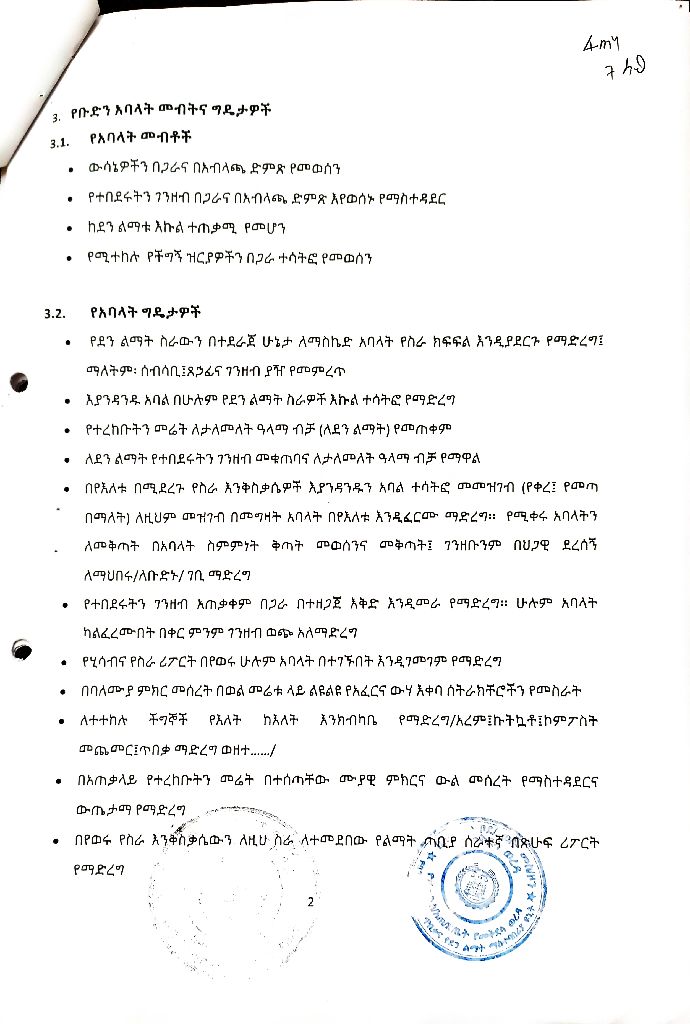 3. የቡድን አባላት መብትና ግዴታዎች
3.1. የአባላት መብቶች
• ውሳኔዎችን በጋራና በአብላጫ ድምጽ የመወሰን
• የተበደሩትን ገንዘብ በጋራና በአብላጫ ድምጽ እየወሰኑ የማስተዳደር
• ከደን ልማቱ እኩል ተጠቃሚ የመሆን
• የሚተከሉ የችግኝ ዝርያዎችን በጋራ ተሳትፎ የመወሰን
3.2. የአባላት ግዴታዎች
• የደን ልማት ስራውን በተደራጀ ሁኔታ ለማስኬድ አባላት የስራ ክፍፍል እንዲያደርጉ የማድረግ፤
ማለትም፡ ሰብሳቢ፤ጸኃፊና ገንዘብ ያዥ የመምረጥ
• እያንዳንዱ አባል በሁሉም የደን ልማት ስራዎች እኩል ተሳትፎ የማድረግ
• የተረከቡትን መሬት ለታለመለት ዓላማ ብቻ (ለደን ልማት) የመጠቀም
• ለደን ልማት የተበደሩትን ገንዘብ መቁጠባና ለታለመለት ዓላማ ብቻ የማዋል
• በየእለቱ በሚደረጉ የስራ እንቅስቃሴዎች እያንዳንዱን አባል ተሳትፎ መመዝገብ (የቀረ፤ የመጣ
በማለት) ለዚህም መዝገብ በመግዛት አባላት በየእለቱ እንዲፈርሙ ማድረግ። የሚቀሩ አባላትን
ለመቅጣት በአባላት ስምምነት ቅጣት መወሰንና መቅጣት፤ ገንዘቡንም በህጋዊ ደረሰኝ
ለማህበሩ/ለቡድኑ/ ገቢ ማድረግ
• የተበደሩትን ገንዘብ አጠቃቀም በጋራ በተዘጋጀ እቅድ እንዲመራ የማድረግ። ሁሉም አባላት
ካልፈረሙበት በቀር ምንም ገንዘብ ወጭ አለማድረግ
• የሂሳብና የስራ ሪፖርት በየወሩ ሁሉም አባላት በተገኙበት እንዲገመገም የማድረግ
• በባለሙያ ምክር መሰረት በወል መሬቱ ላይ ልዩልዩ የአፈርና ውሃ እቀባ ስትራክቸሮችን የመስራት
• ለተተከሉ ችግኞች የእለት ከእለት እንክብካቤ የማድረግ/አረም፤ኩትኳቶ፤ኮምፖስት
መጨመር፤ጥበቃ ማድረግ ወዘተ....../
• በአጠቃላይ የተረከቡትን መሬት በተሰጣቸው ሙያዊ ምክርና ውል መሰረት የማስተዳደርና
ውጤታማ የማድረግ
• በየወሩ የስራ እንቅስቃሴውን ለዚህ ስራ ለተመደበው የልማት ጣቢያ ሰራተኛ በጽሁፍ ሪፖርት
የማድረግ
2